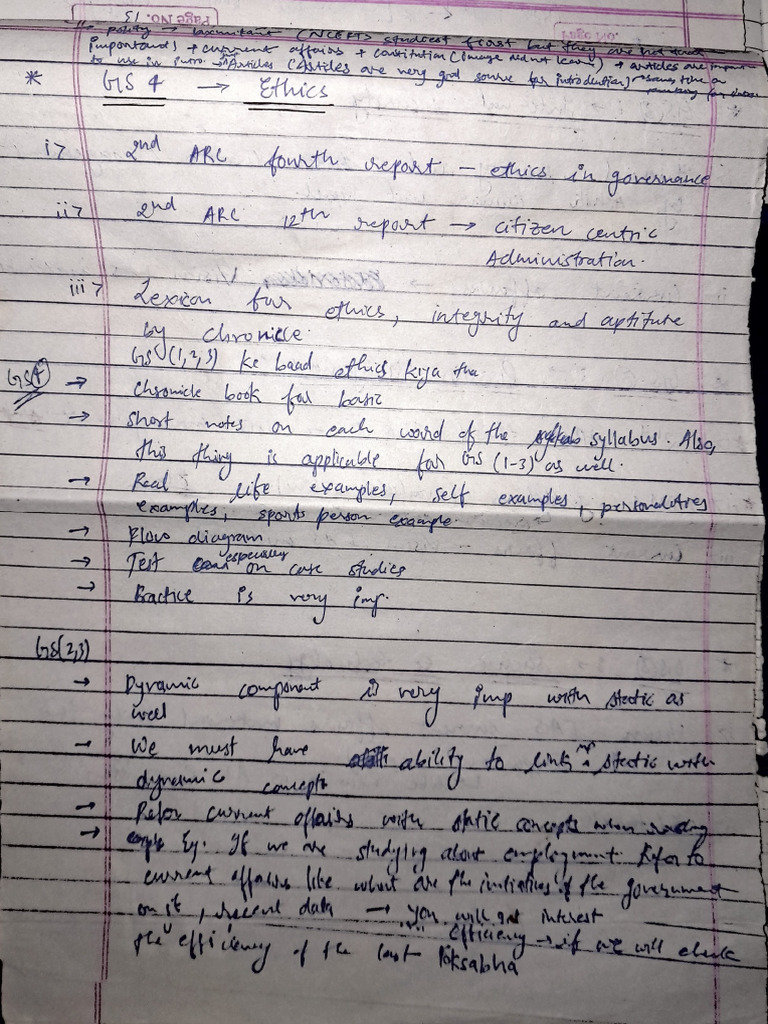 Page No. 51
polity → Laxmikant (NCERTs
important) + current affairs + constitution ( ) + articles are
to use in intro. → Articles (Articles are very god source for introduction)
* GS 4 → Ethics
i> 2nd ARC fourth report – ethics in governance
ii> 2nd ARC 12th report → citizen centric
Administration.
iii> Lexicon for ethics, integrity and aptitute
by chronicle.
GS (1,2,3) ke baad ethics kiya tha
GS4 → Chronicle book for basic
→ Short notes on each word of the syllabus. Also,
this thing is applicable for GS (1-3) as well.
→ Real life examples, self examples, personalities
examples, sports person example.
→ Flow diagram
→ Test especially on case studies
→ Practice is very imp.
GS(2,3)
→ Dynamic component is very imp with static as
well
→ We must have ability to link static with
dynamic concepts
→ Refer current affairs with static concepts when reading
→ Eg. If we are studying about employment. Refer to
current affairs like what are the initiatives of the government
on it, recent data → You will get interest
efficiency → if we will check
the efficiency of the last loksabha